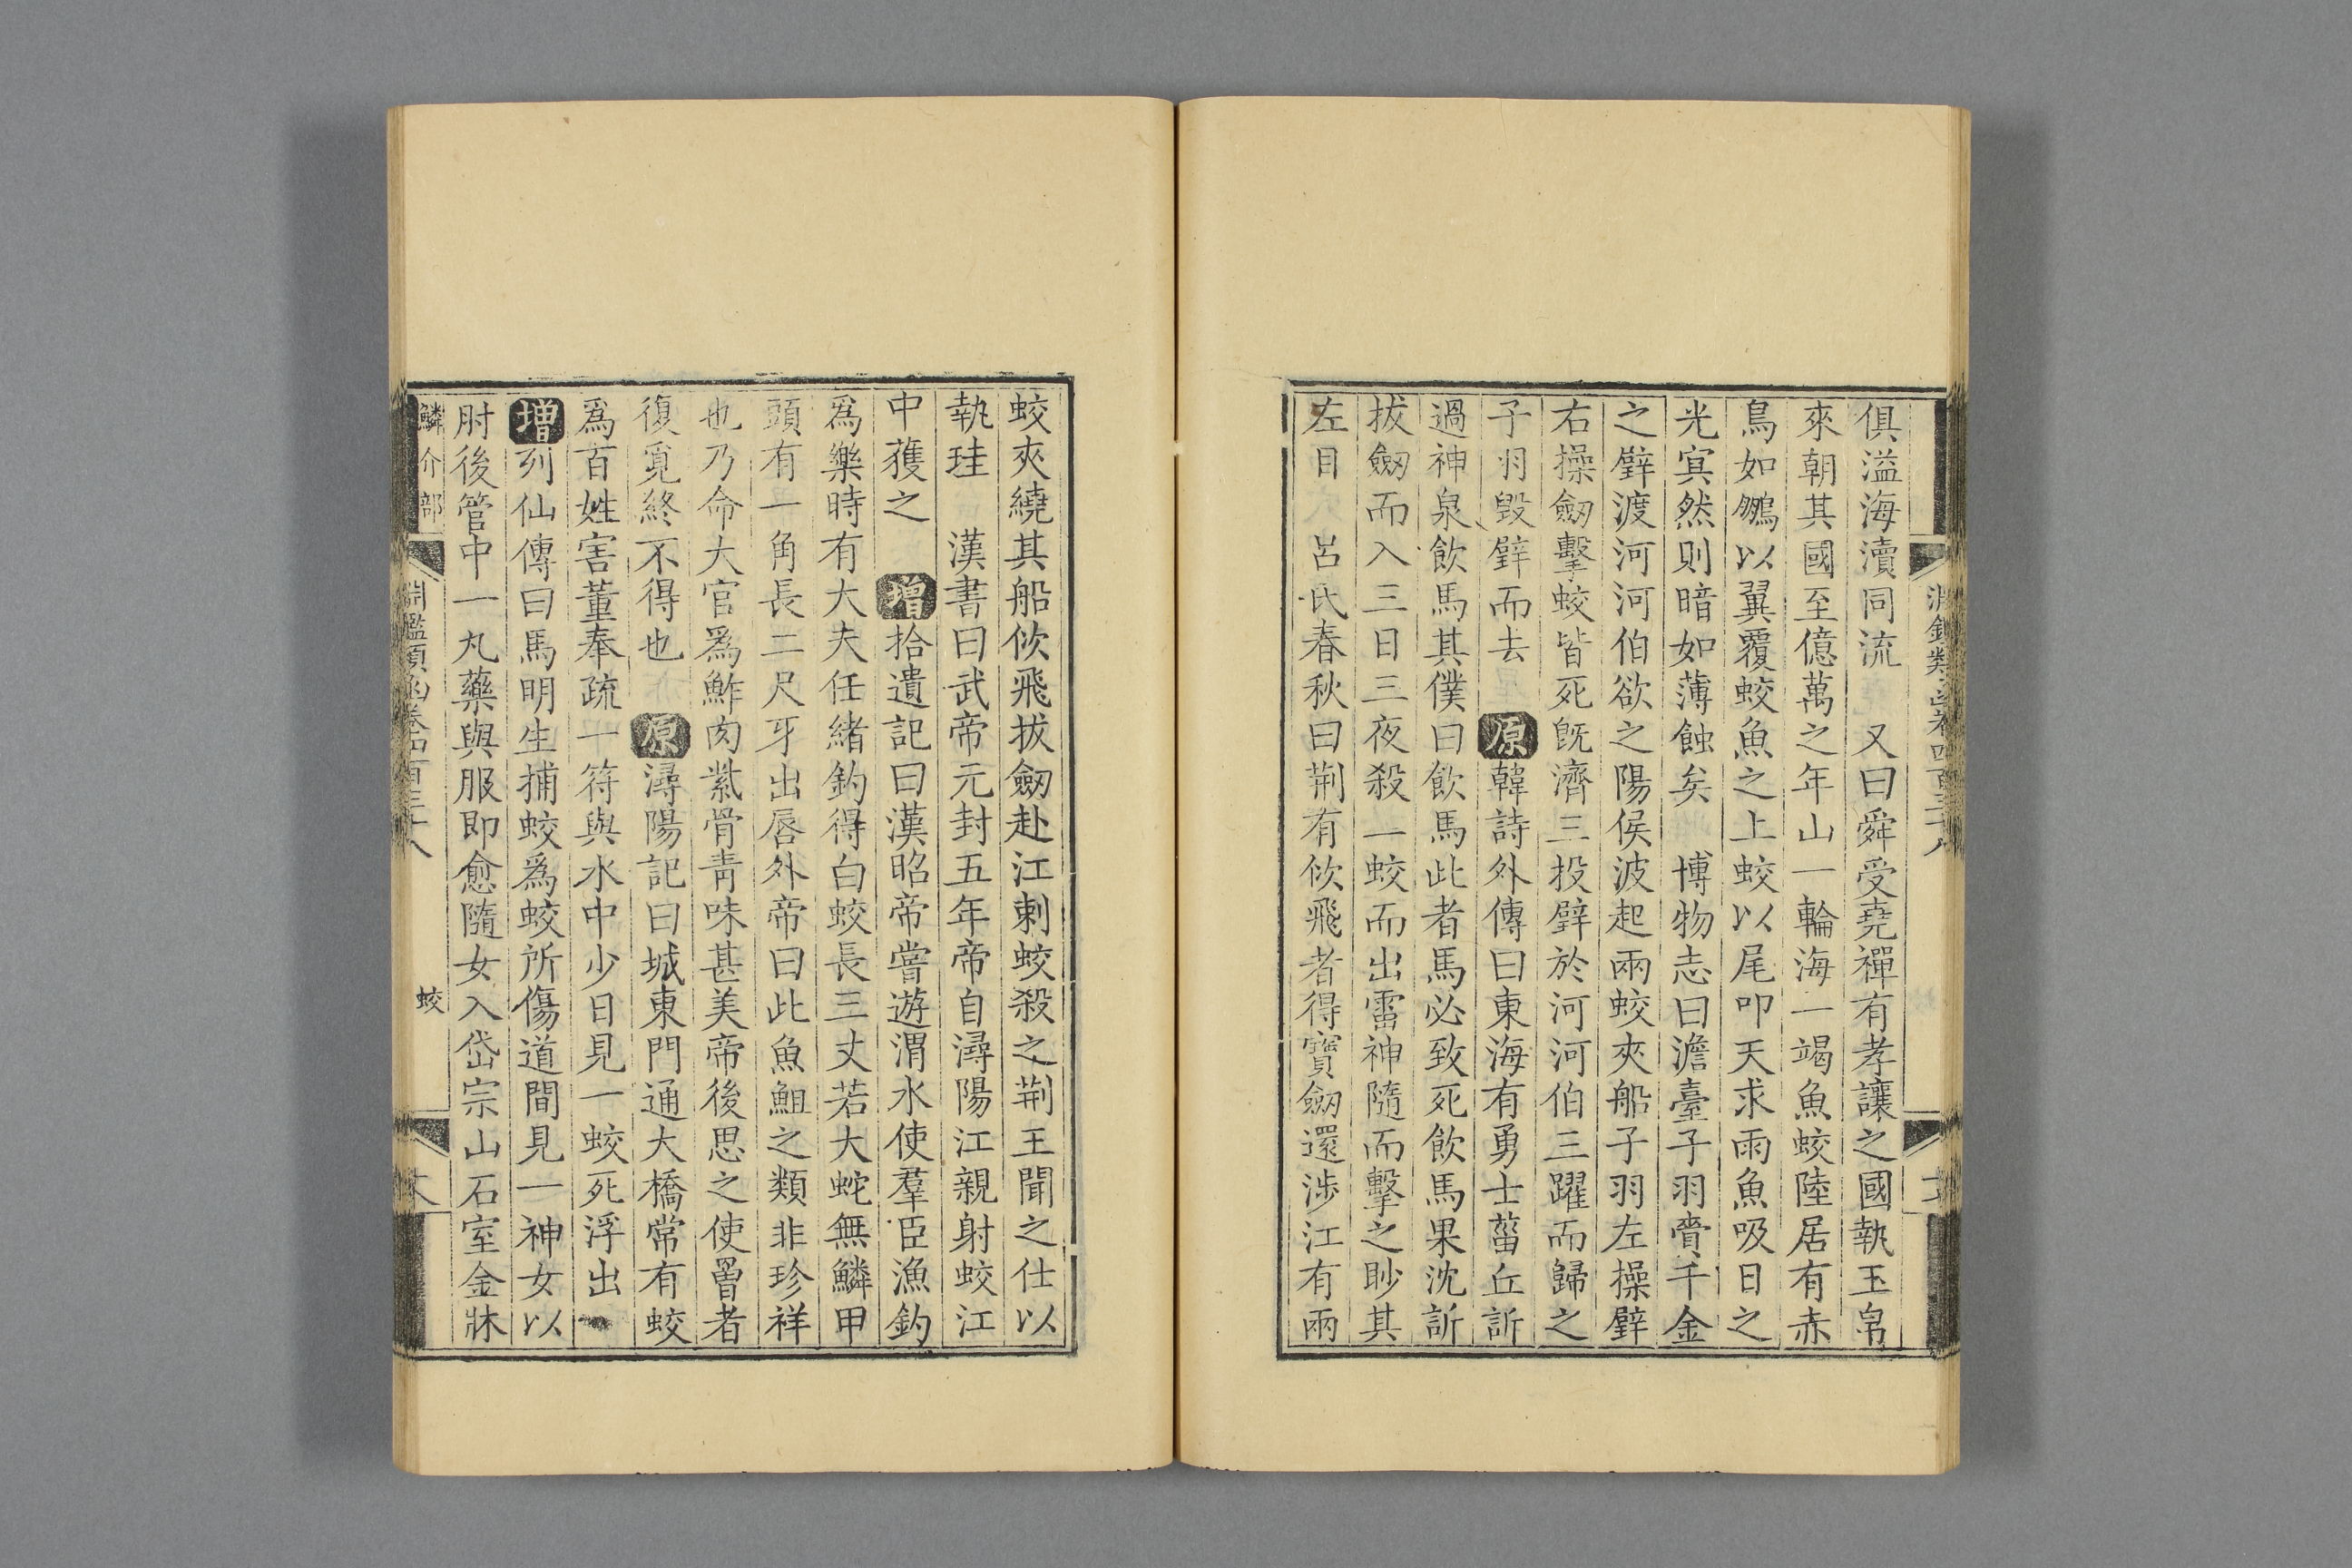 俱溢海瀆同流　又曰舜受堯禪有孝讓之國執玉帛
來朝其國至億萬之年山一輪海一竭魚蛟陸居有赤
鳥如鵬以翼覆蛟魚之上蛟以尾叩天求雨魚吸日之
光寘然則暗如薄蝕矣　博物志曰澹臺子羽齎千金
之璧渡河河伯欲之陽侯波起兩蛟夾船子羽左操璧
右操劒擊蛟皆死旣濟三投璧於河河伯三躍而歸之
子羽毀璧而去　原韓詩外傳曰東海有勇士菑丘訢
過神泉飲馬其僕曰飲馬此者馬必致死飲馬果沈訢
拔劒而入三日三夜殺一蛟而出雷神隨而擊之眇其
左目　呂氏春秋曰荆有佽飛者得寶劒還涉江有兩
蛟夾繞其船佽飛拔劒赴江刺蛟殺之荆王聞之仕以
執珪　漢書曰武帝元封五年帝自潯陽江親射蛟江
中獲之　增拾遺記曰漢昭帝嘗遊渭水使羣臣漁釣
爲樂時有大夫任緒釣得白蛟長三丈若大蛇無鱗甲
頭有一角長二尺牙出唇外帝曰此魚䱉之類非珍祥
也乃命大官爲鮓肉紫骨青味甚美帝後思之使罾者
復覓終不得也　原潯陽記曰城東門通大橋常有蛟
爲百姓害董奉疏一符與水中少日見一蛟死浮出
增列仙傳曰馬明生捕蛟爲蛟所傷道間見一神女以
肘後管中一丸藥與服即愈隨女入岱宗山石室金牀
鱗介部　淵鑑類函卷四百三十八　蛟